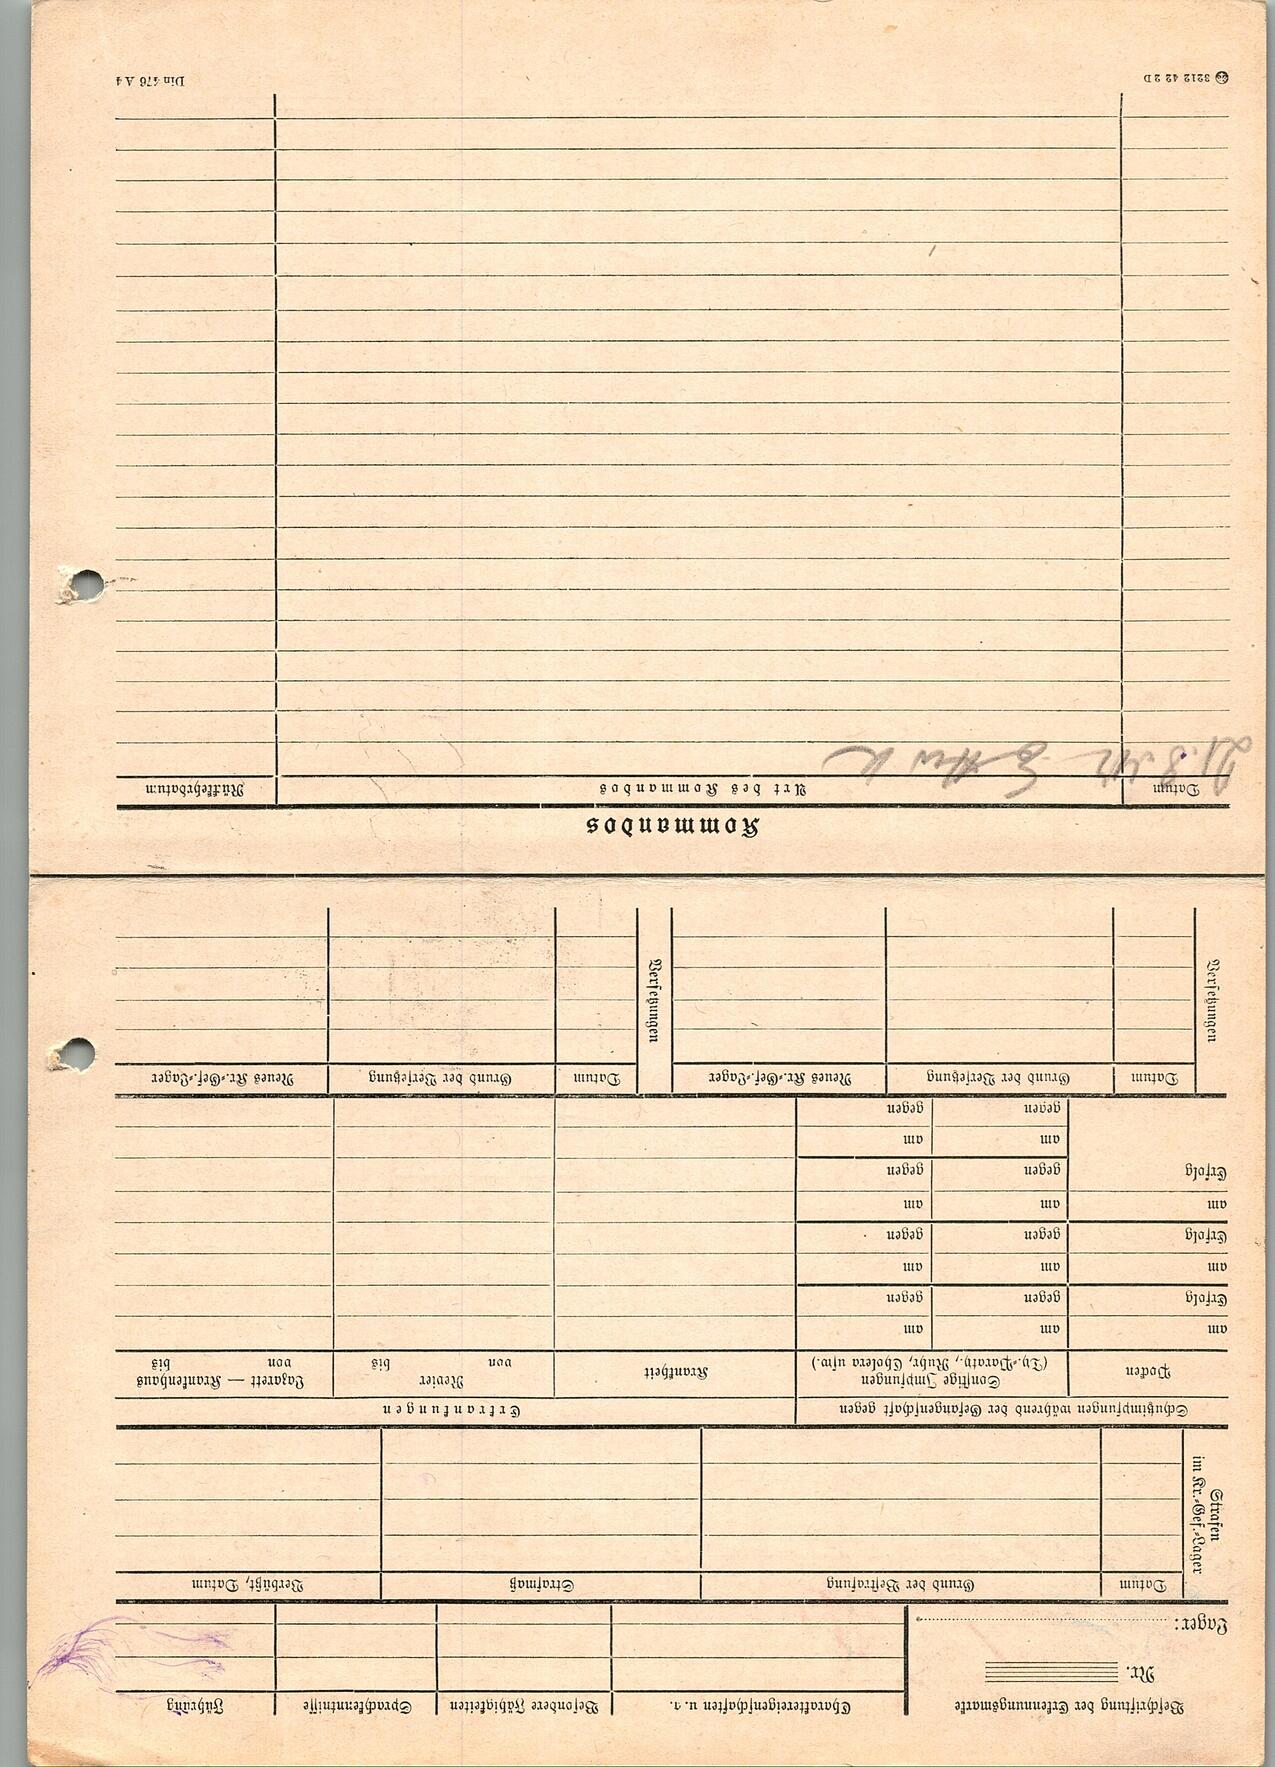 Beschriftung der Erkennungsmarke
Nr.
Lager:
Charaktereigenschaften u. a.
Besondere Fähigkeiten
Sprachkenntnisse
Führung
Strafen
im Kr.-Gef.-Lager
Datum
Grund der Bestrafung
Strafmaß
Verbüßt, Datum
Schutzimpfungen während der Gefangenschaft gegen
Erkrankungen
Pocken
Sonstige Impfungen
(Ty.-Paraty., Ruhr, Cholera usw.)
Krankheit
Revier
von bis
Lazarett — Krankenhaus
von bis
am am am
Erfolg gegen gegen
am am am
Erfolg gegen gegen
am am am
Erfolg gegen gegen
am am
gegen gegen
Versetzungen
Datum
Grund der Versetzung
Neues Kr.-Gef.-Lager
Versetzungen
Datum
Grund der Versetzung
Neues Kr.-Gef.-Lager
Kommandos
Datum
Art des Kommandos
Rückkehrdatum
21.8.42
3212 42 2 D
Din 476 A 4